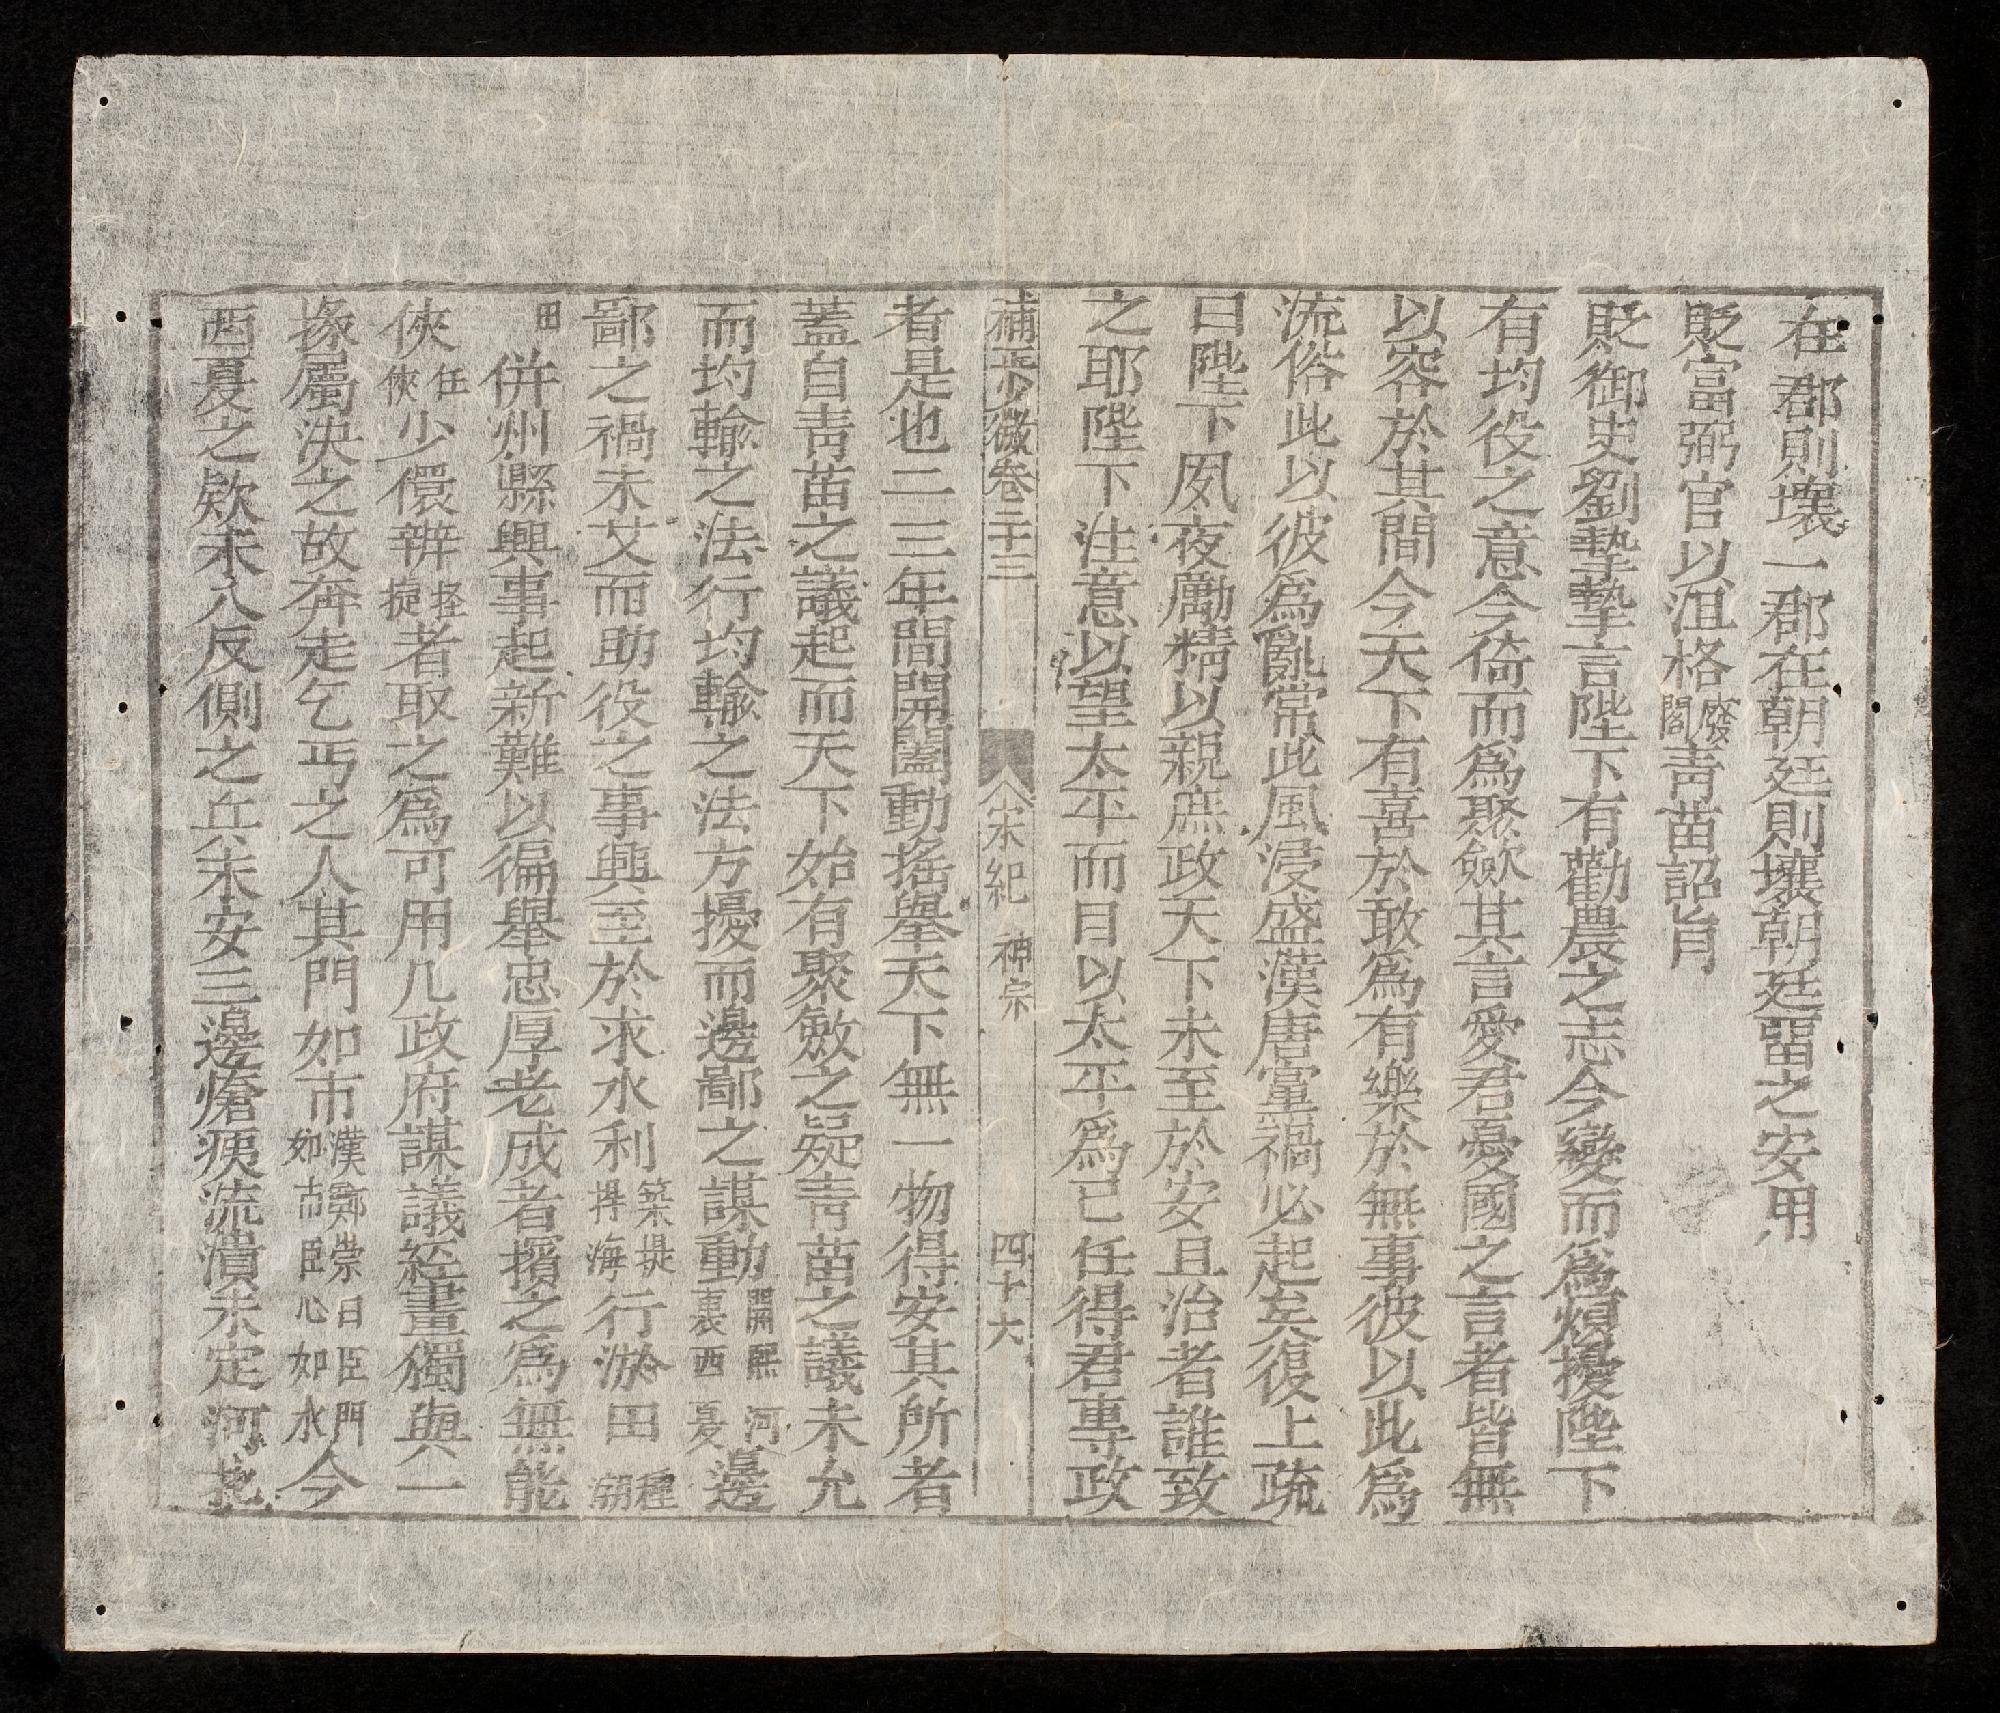 在郡則壞一郡在朝廷則壞朝廷畱之安用
貶富弼官以沮格廢閣青苗詔旨
貶御史劉摯摯言陛下有勸農之志今變而爲煩擾陛下
有均役之意今倚而爲聚斂其言愛君憂國之言者皆無
以容於其間今天下有喜於敢爲有樂於無事彼以此爲
流俗此以彼爲亂常此風浸盛漢唐黨禍必起矣復上疏
曰陛下夙夜勵精以親庶政天下未至於安且治者誰致
之耶陛下注意以望太平而目以太平爲己任得君專政
補史徵卷二十三 宋紀 神宗 四十六
者是也二三年間開闔動搖舉天下無一物得安其所者
蓋自青苗之議起而天下始有聚斂之疑青苗之議未允
而均輸之法行均輸之法方擾而邊鄙之謀動開熙河裏西夏邊
鄙之禍未艾而助役之事興至於求水利築堤捍海行淤田種朝
田併州縣興事起新難以徧舉忠厚老成者擯之爲無能
俠任俠少儇辨捷者取之爲可用凡政府謀議經畫獨與一
掾屬決之故奔走乞丐之人其門如市漢鄭崇曰臣門如市臣心如水今
西夏之欵未入反側之兵未安三邊瘡痍流潰未定河